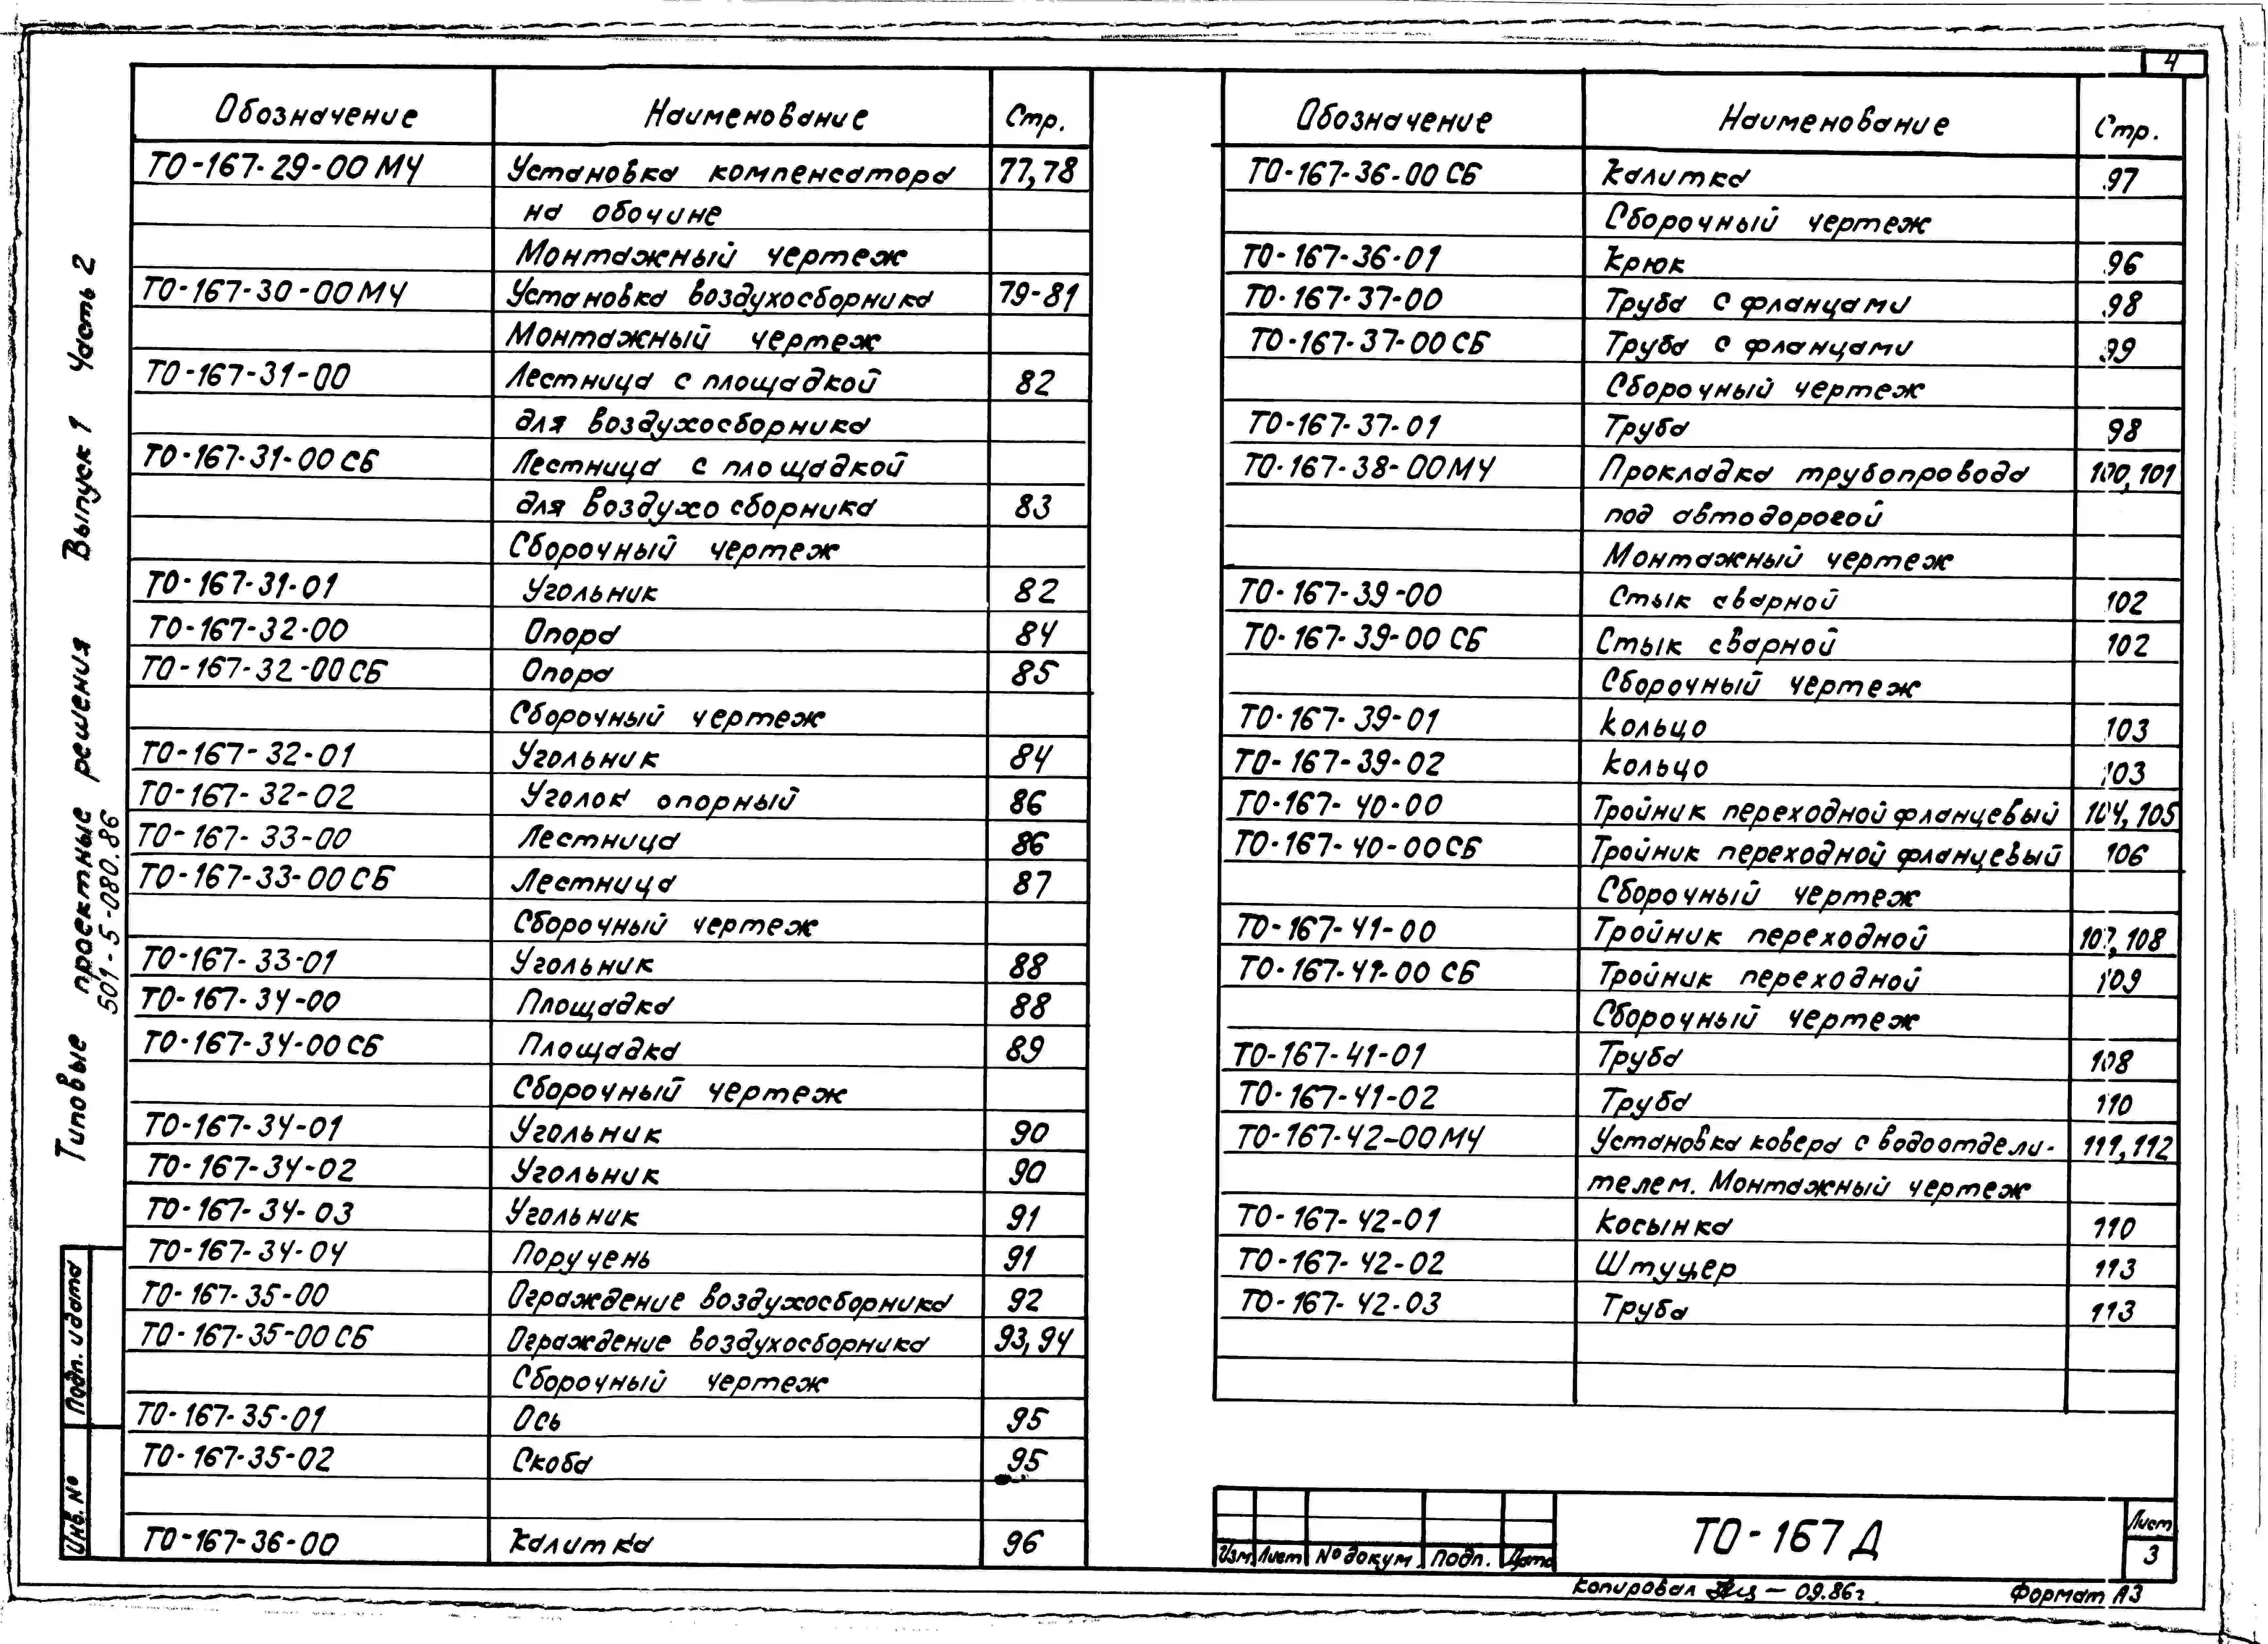 4
Типовые проектные решения Выпуск 1 Часть 2
501-5-080.86
Обозначение Наименование Стр.
ТО-167-29-00 МЧ Установка компенсатора 77,78
на обочине
Монтажный чертеж
ТО-167-30-00 МЧ Установка воздухосборника 79-81
Монтажный чертеж
ТО-167-31-00 Лестница с площадкой 82
для воздухосборника
ТО-167-31-00 СБ Лестница с площадкой
для воздухосборника 83
Сборочный чертеж
ТО-167-31-01 Угольник 82
ТО-167-32-00 Опора 84
ТО-167-32-00 СБ Опора 85
Сборочный чертеж
ТО-167-32-01 Угольник 84
ТО-167-32-02 Уголок опорный 86
ТО-167-33-00 Лестница 86
ТО-167-33-00 СБ Лестница 87
Сборочный чертеж
ТО-167-33-01 Угольник 88
ТО-167-34-00 Площадка 88
ТО-167-34-00 СБ Площадка 89
Сборочный чертеж
ТО-167-34-01 Угольник 90
ТО-167-34-02 Угольник 90
ТО-167-34-03 Угольник 91
ТО-167-34-04 Поручень 91
ТО-167-35-00 Ограждение воздухосборника 92
ТО-167-35-00 СБ Ограждение воздухосборника 93,94
Сборочный чертеж
ТО-167-35-01 Ось 95
ТО-167-35-02 Скоба 95
ТО-167-36-00 Калитка 96
Обозначение Наименование Стр.
ТО-167-36-00 СБ Калитка 97
Сборочный чертеж
ТО-167-36-01 Крюк 96
ТО-167-37-00 Труба с фланцами 98
ТО-167-37-00 СБ Труба с фланцами 99
Сборочный чертеж
ТО-167-37-01 Труба 98
ТО-167-38-00 МЧ Прокладка трубопровода 100,101
под автодорогой
Монтажный чертеж
ТО-167-39-00 Стык сварной 102
ТО-167-39-00 СБ Стык сварной 102
Сборочный чертеж
ТО-167-39-01 Кольцо 103
ТО-167-39-02 Кольцо 103
ТО-167-40-00 Тройник переходной фланцевый 104,105
ТО-167-40-00 СБ Тройник переходной фланцевый 106
Сборочный чертеж
ТО-167-41-00 Тройник переходной 107,108
ТО-167-41-00 СБ Тройник переходной 109
Сборочный чертеж
ТО-167-41-01 Труба 108
ТО-167-41-02 Труба 110
ТО-167-42-00 МЧ Установка ковера с водоотдели- 111,112
телем. Монтажный чертеж
ТО-167-42-01 Косынка 110
ТО-167-42-02 Штуцер 113
ТО-167-42-03 Труба 113
Подп. и дата
Инв. №
Изм. Лист № докум. Подп. Дата
ТО-167 Д
Лист
3
Копировал — 09.86г.
Формат А3